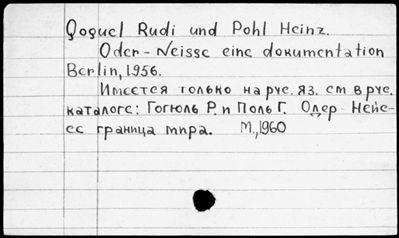 Qoguel Rudi und Pohl Heinz.
Oder-Neisse eine dokumentation
Berlin, 1956.
Имеется только на рус. яз. см в рус.
каталоге: Гогюль Р. и Поль Г. Одер Нейс-
ес граница мира. М., 1960